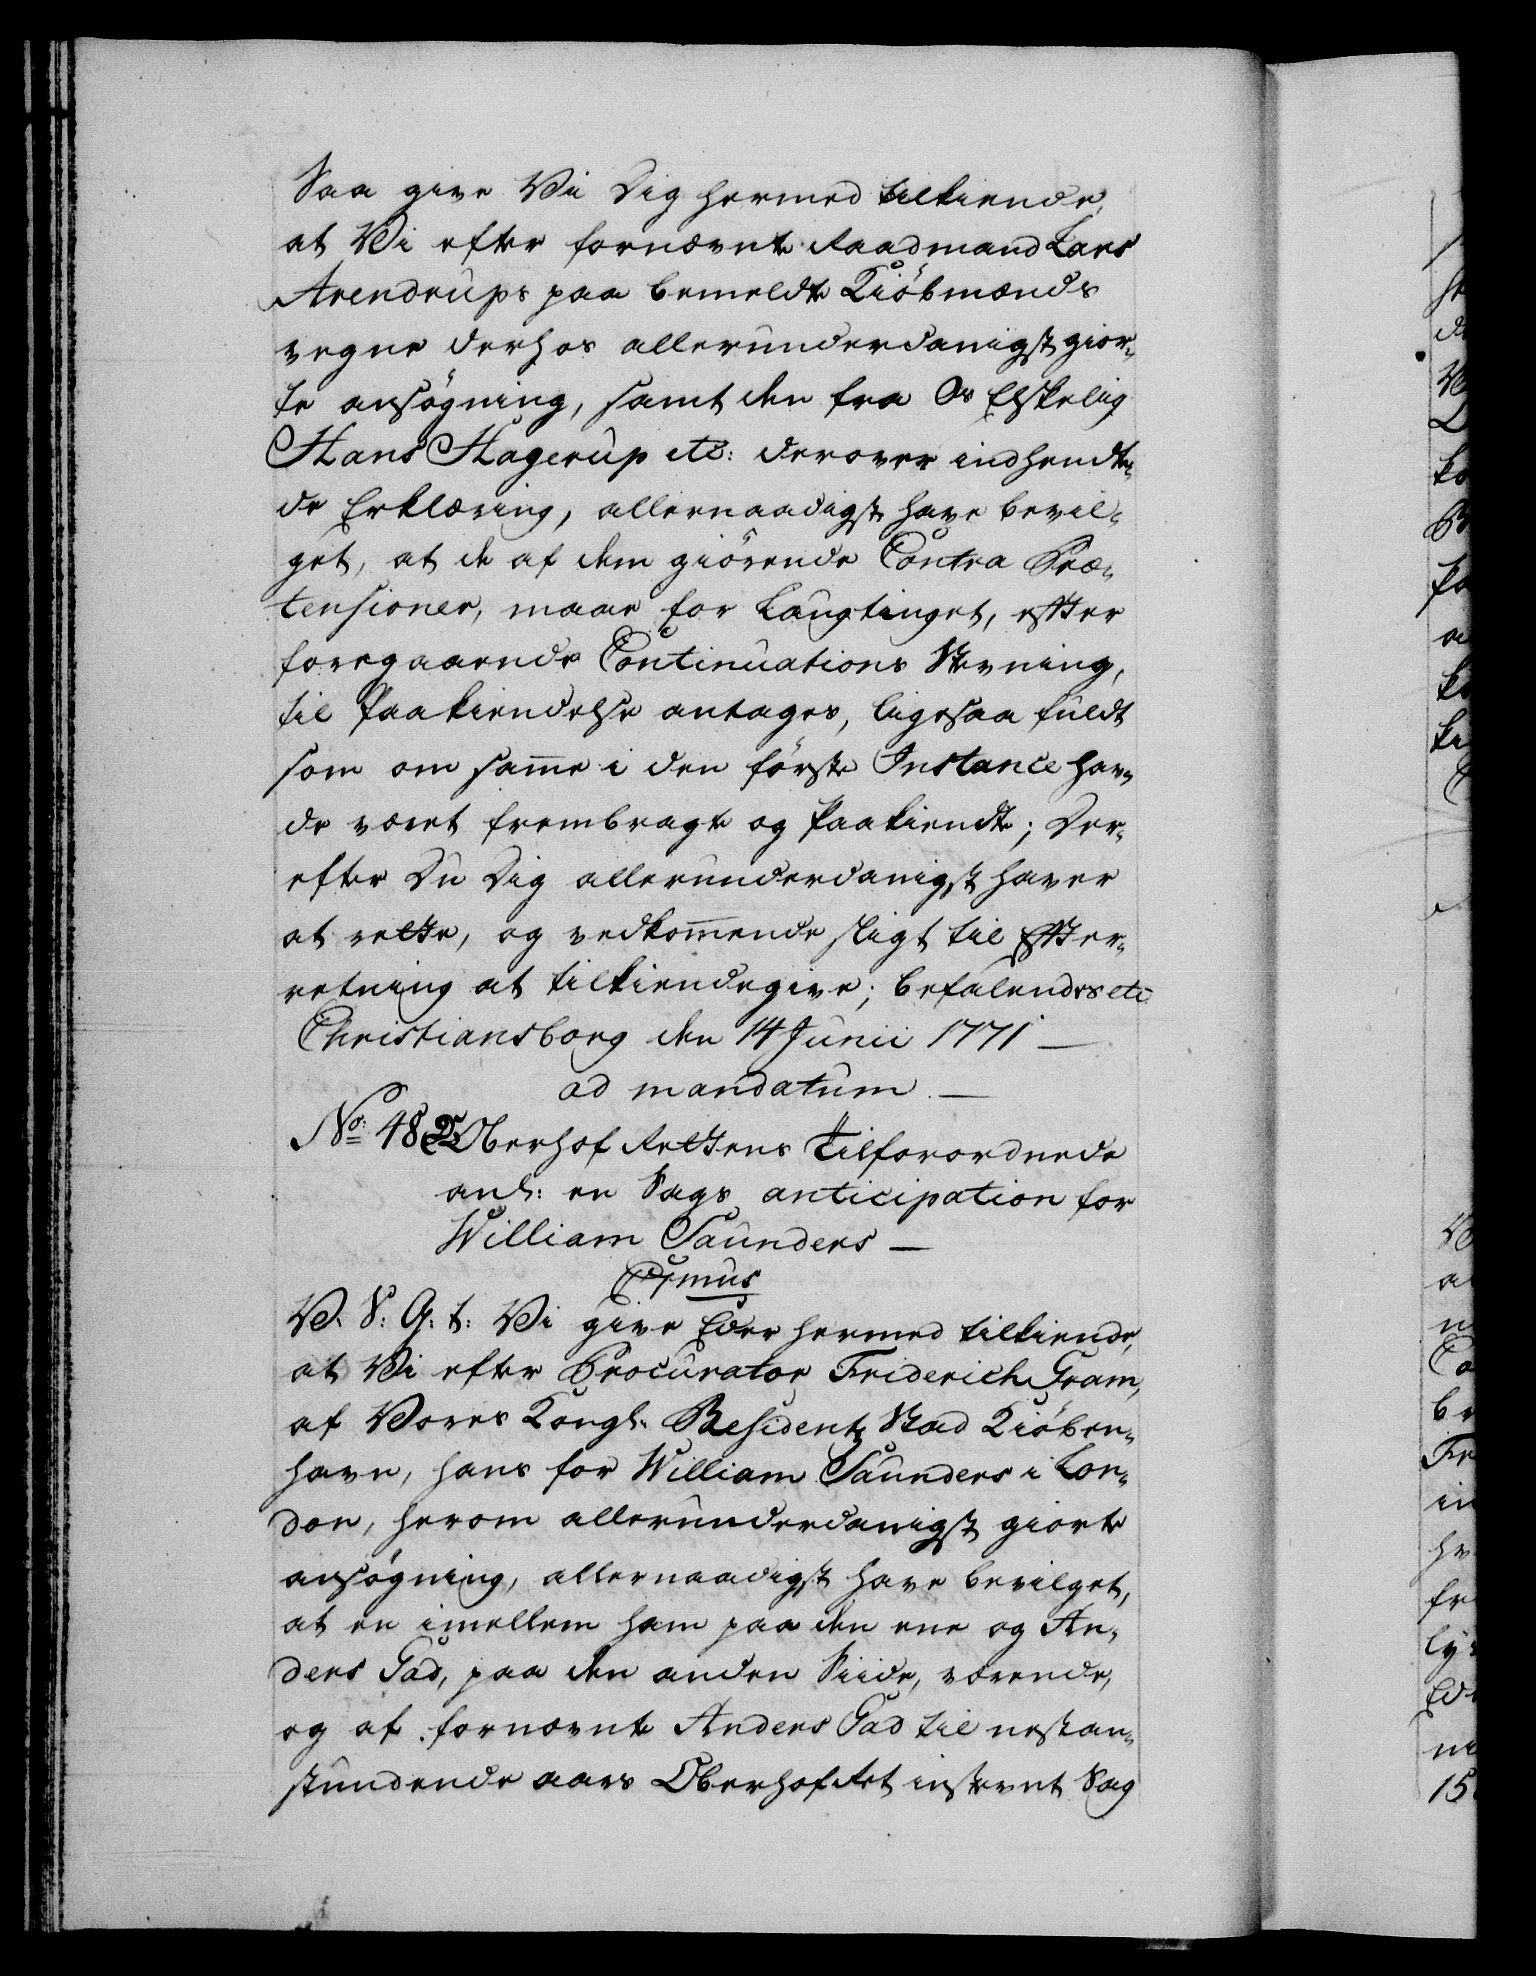 Saa give Vi Dig hermed tilkiende,
at Vi efter fornævnte Raadmand Lars
Arendrups paa bemeldte Kiöbmænds
vegne derhos allerunderdanigst gior¬
te ansögning, samt den fra Os Elskelig
Hans Hagerup etc: derover indhendte¬
de Erklæring, allernaadigst have bevil¬
get, at de af dem giörende Contra Præ¬
tensioner, maae for Laugtinget, efter
foregaaende Continuations Stevning,
til Paakiendelse antages, ligesaa fuldt
som om samme i den förste Instance hav¬
de været frembragt og Paakiendt; Der¬
efter Du Dig allerunderdanigst haver
at rette, og vedkommende sligt til Efter¬
retning at tilkiendegive; befalendes etc
Christiansborg den 14 Junii 1771 —
ad mandatum. —
No: 482 Oberhof Rettens Tilforordnede
anl: en Sags anticipation for
William Saunders —
C7mus
V. S: G: t: Vi give Eder hermed tilkiende,
at Vi efter Procurator Friderich Gram,
af Vores Kongl: Residentz Stad Kiöben¬
havn, hans for William Saunders i Lon¬
don, herom allerunderdanigst giorte
ansögning, allernaadigst have bevilget,
at en imellem ham paa den ene og An¬
ders Gad, paa den anden Siide, værende,
og af fornævnte Anders Gad til nestan¬
stundende aars OberhofRet instevnt Sag